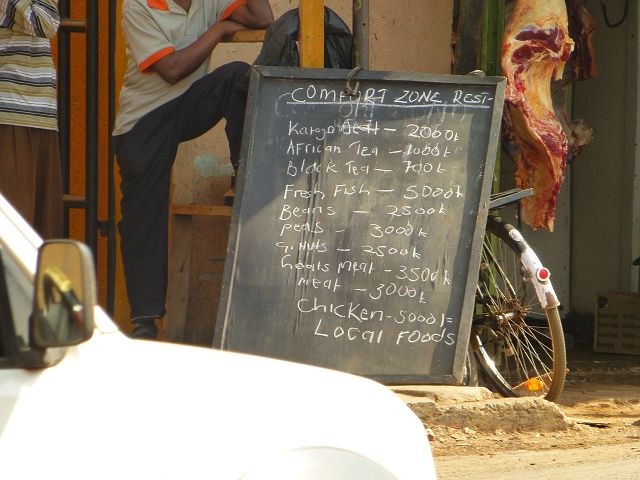 COMFORT ZONE REST-
Katogo Beef - 2000k
African Tea - 1000k
Black Tea - 700k
Fresh Fish - 5000k
Beans - 2500k
peas - 3000k
G.NUTS - 2500k
Goats meat - 3500k
meat - 3000k
Chicken - 5000/=
Local Foods